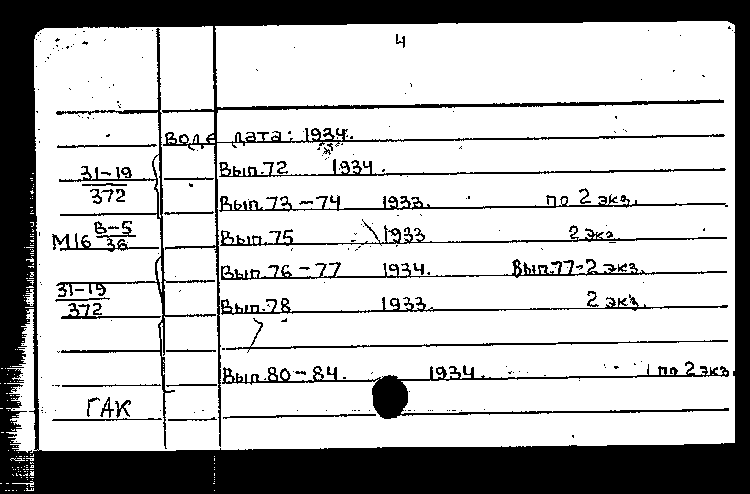 4
дата: 1934.
31-19 Вып.72 1934.
372 Вып.73-74 1933. по 2 экз.
М16 В-5 Вып.75 1933 2 экз.
36
Вып.76-77 1934. Вып.77-2 экз.
31-19
372 Вып.78 1933. 2 экз.
Вып.80-84. 1934. по 2 экз.
ГАК